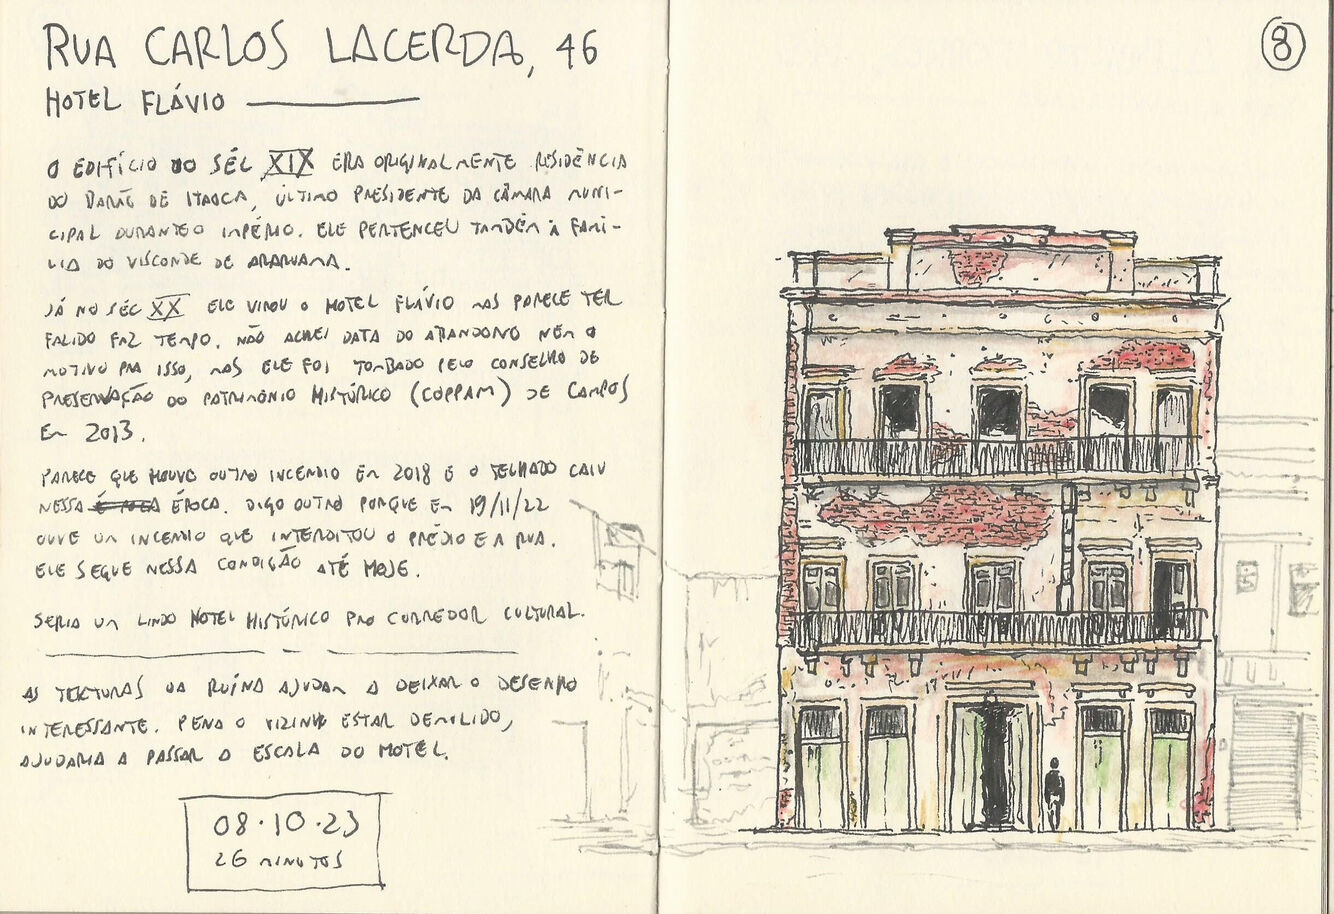 RUA CARLOS LACERDA, 46
HOTEL FLÁVIO
8
O EDIFÍCIO DO SÉC XIX ERA ORIGINALMENTE RESIDÊNCIA
DO BARÃO DE ITAOCA, ÚLTIMO PRESIDENTE DA CÂMARA MUNI-
CIPAL DURANTE O IMPÉRIO. ELE PERTENCEU TAMBÉM À FAMÍ-
LIA DO VISCONDE DE ARARUAMA.
JÁ NO SÉC XX ELE VIROU O HOTEL FLÁVIO MAS PARECE TER
FALIDO FAZ TEMPO. NÃO ACHEI DATA DO ABANDONO NEM O
MOTIVO PRA ISSO, MAS ELE FOI TOMBADO PELO CONSELHO DE
PRESERVAÇÃO DO PATRIMÔNIO HISTÓRICO (COPPAM) DE CAMPOS
EM 2013.
PARECE QUE HOUVE OUTRO INCENDIO EM 2018 E O TELHADO CAIU
NESSA ÉPOCA. DIGO OUTRO PORQUE EM 19/11/22
OUVE UM INCENDIO QUE INTERDITOU O PRÉDIO E A RUA.
ELE SEGUE NESSA CONDIÇÃO ATÉ HOJE.
SERIA UM LINDO HOTEL HISTÓRICO PRO CORREDOR CULTURAL.
AS TEXTURAS DA RUÍNA AJUDAM A DEIXAR O DESENHO
INTERESSANTE. PENA O VIZINHO ESTAR DEMOLIDO,
AJUDARIA A PASSAR A ESCALA DO HOTEL.
08.10.23
26 MINUTOS